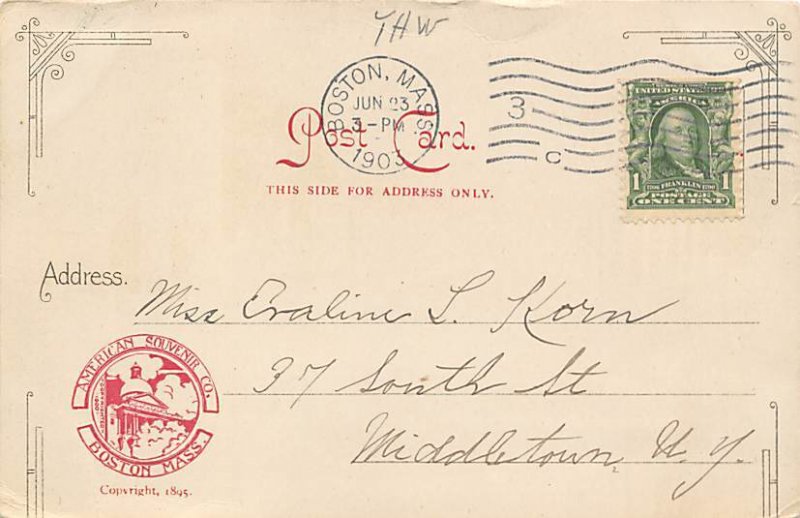 THW
BOSTON, MASS.
JUN 23
3-PM
1903
3
C
UNITED STATES OF
AMERICA
1 FRANKLIN 1
POSTAGE
ONE CENT
Post Card.
THIS SIDE FOR ADDRESS ONLY.
Address.
Miss Evaline L. Korn
37 South St
Middletown N. Y.
AMERICAN SOUVENIR CO.
BOSTON MASS.
Copyright, 1895.